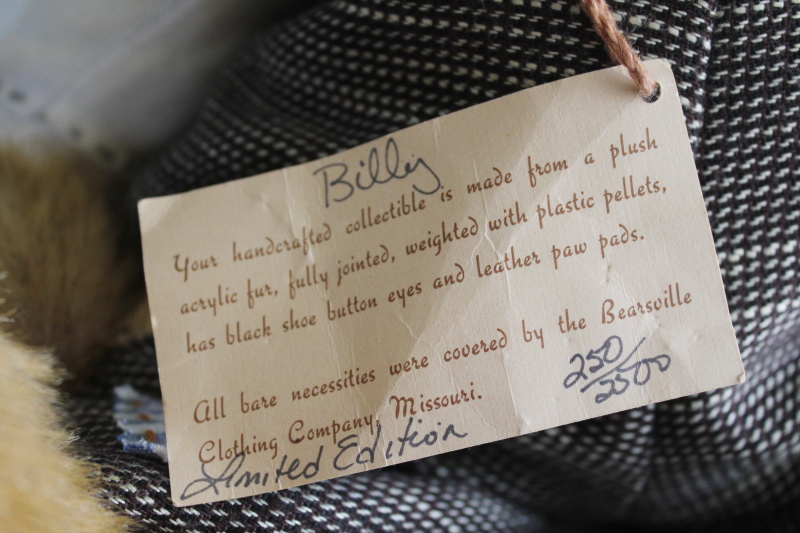 Billy
Your handcrafted collectible is made from a plush
acrylic fur, fully jointed, weighted with plastic pellets,
has black shoe button eyes and leather paw pads.
All bare necessities were covered by the Bearsville
Clothing Company, Missouri.
250/2500
Limited Edition